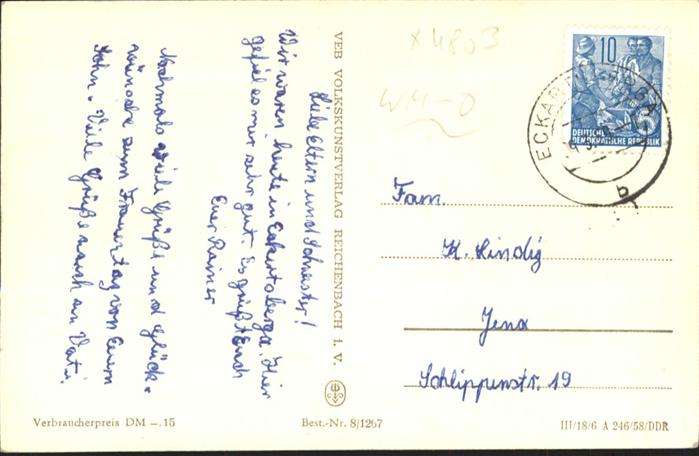 Liebe Eltern und Schwester!
Wir waren heute in Eckartsberga. Hier
gefiel es mir sehr gut. Es grüßt Euch
Euer Rainer
Nochmals viele Grüße und Glück-
wünsche zum Frauentag von Euern
Sohn. Viele Grüße auch an Vati.
VEB VOLKSKUNSTVERLAG REICHENBACH I. V.
x 4803
WM-0
10
DEUTSCHE
DEMOKRATISCHE REPUBLIK
b
Fam.
K. Lindig
Jena
Schlippenstr. 19
Verbraucherpreis DM -.15
Best.-Nr. 8/1267
III/18/6 A 246/58/DDR